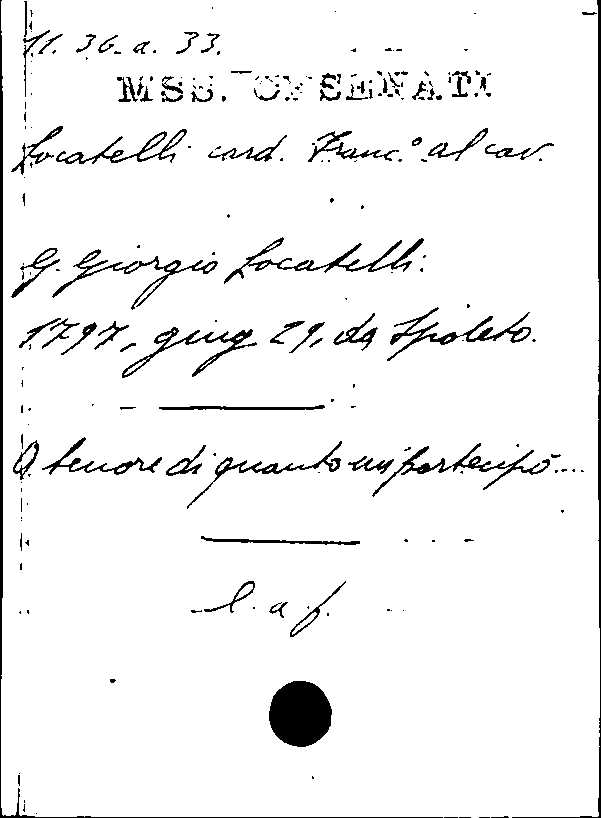 11. 36. a. 33.
MSS. CESENATI
Locatelli card. Franc.º al cav.
G. Giorgio Locatelli.
1797, giug 29, da Spoleto.
A tenore di quanto mi partecipò...
l. a f.